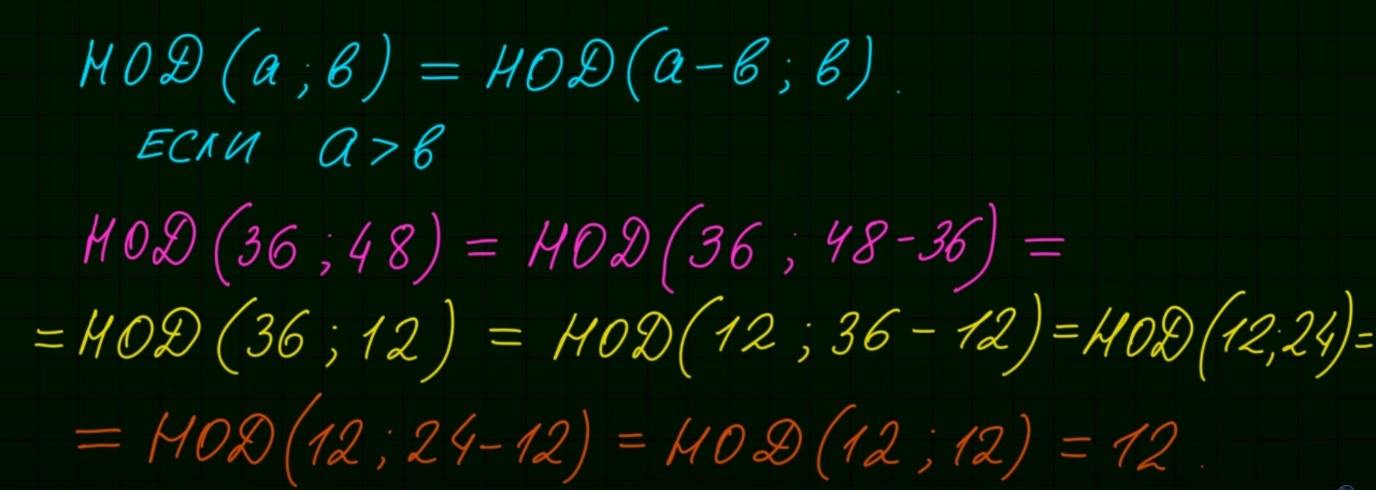 НОД(а;в) = НОД(а-в;в).
ЕСЛИ а>в
НОД(36;48) = НОД(36;48-36) =
=НОД(36;12) = НОД(12;36-12)=НОД(12;24)=
=НОД(12;24-12)=НОД(12;12) = 12.